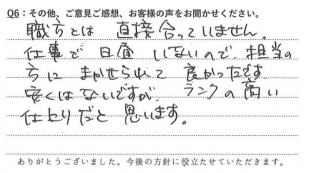 Q6：その他、ご意見ご感想、お客様の声をお聞かせください。
職方とは 直接 合っていません。
仕事で 日昼 いないので、担当の
方に まかせられて 良かったです
安くはないですが、ランクの高い
仕上りだと 思います。
ありがとうございました。今後の方針に役立たせていただきます。